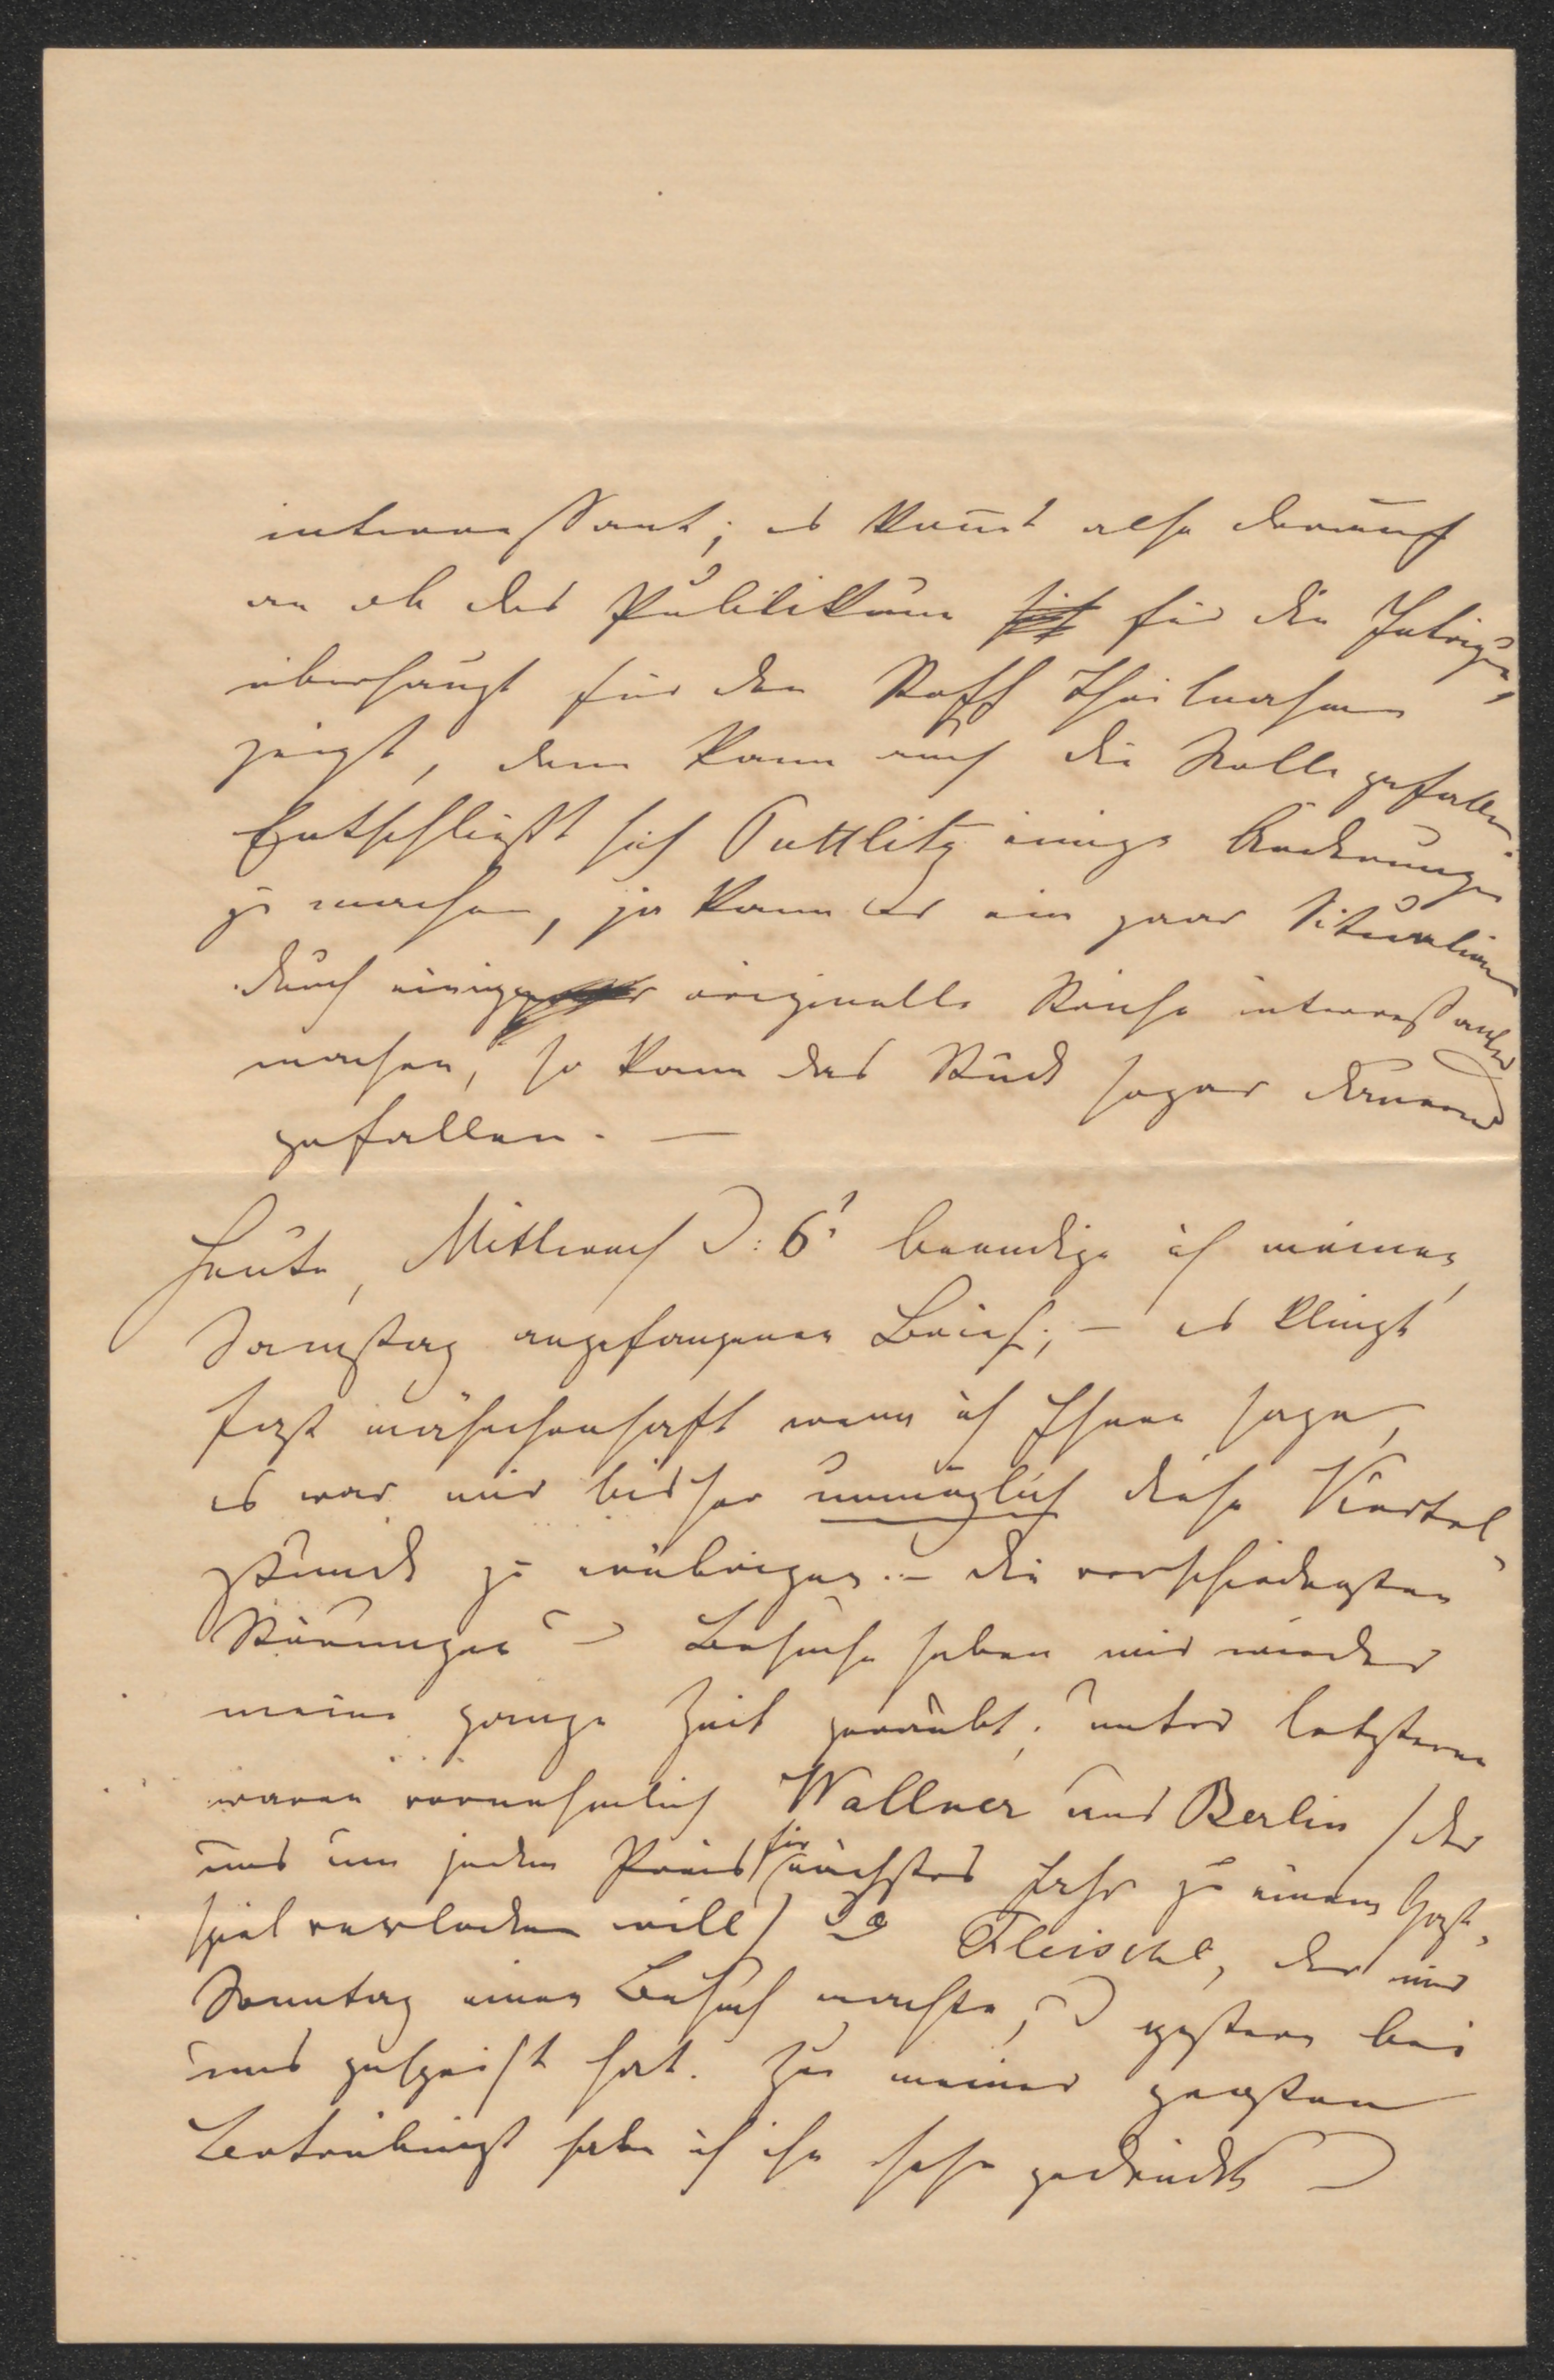 interessant; es kom̄t also darauf
an ob das Publikum sich für die Intrigue,
überhaupt für den Stoff Theilnahme
zeigt, dann kann auch die Rolle gefallen.
Entschließt sich Puttlitz einige Änderungen
zu machen, ja kann er ein paar Situationen
durch einige originelle Striche interessanter
machen, so kann das Stück sogar dauernd
gefallen. —
Heute, Mittwoch d: 6! beendige ich meinen,
Samstag angefangenen Brief; – es klingt
fast märchenhaft wenn ich Ihnen sage,
es war mir bisher unmöglich diese Viertel-
stunde zu erübrigen. – die verschiedensten
Störungen u Besuche haben mir wieder
meine ganze Zeit geraubt; unter letzteren
waren vornehmlich Wallner aus Berlin /der
uns um jeden Preis für nächstes Jahr zu einem Gast-
spiel verlocken will/ Fleischl, der mir
Sonntag einen Besuch machte, u gestern bei
uns gespeist hat. Zu meiner
Betrübniß habe ich ihn sehr gedrückt u